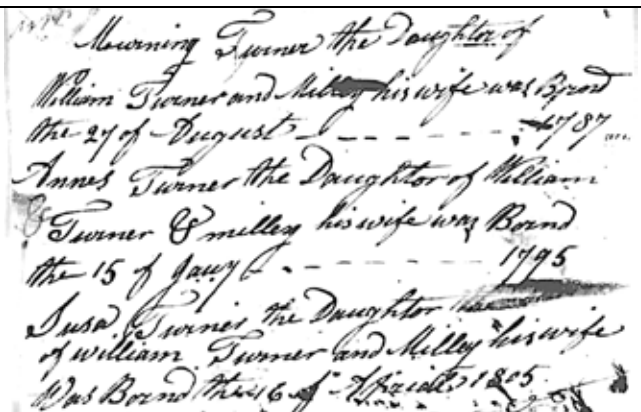 Mourning Turner the Daughter of
William Turner and Milley his wife was Bornd
the 27 of August - - - - - 1787
Annes Turner the Daughtor of William
& Turner & milley his wife was Bornd
the 15 of Jauy - - - - - 1795
Susa Turner the Daughter
of william Turner and Milley his wife
Was Bornd the 16 of 1805